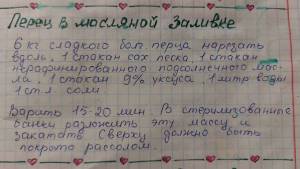 Перец в масляной заливке
6 кг сладкого бол. перца нарезать
вдоль, 1 стакан сах. песка, 1 стакан
нерафинированного подсолнечного мас-
ла, 1 стакан 9% уксуса, 1 литр воды
1 ст л. соли
Варить 15-20 мин В стерилизованные
банки разложить эту массу и
закатать Сверху должно быть
покрыто рассолом.